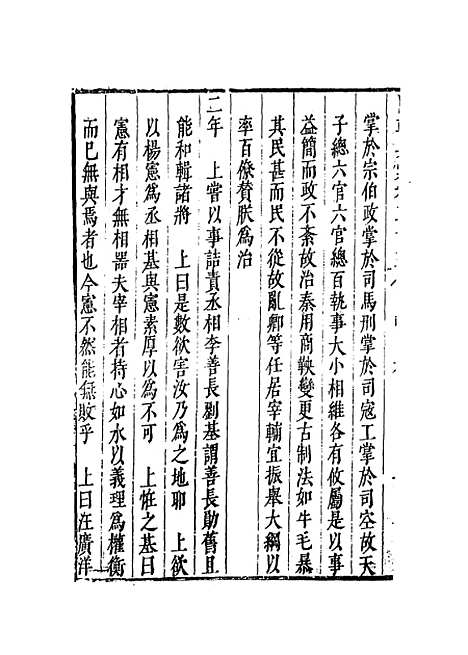 掌於宗伯政掌於司馬刑掌於司寇工掌於司空故天
子總六官六官總百執事大小相維各有攸屬是以事
益簡而政不紊故治秦用商鞅變更古制法如牛毛暴
其民甚而民不從故亂卿等任居宰輔宜振舉大綱以
率百僚贊朕為治
二年　上嘗以事詰責丞相李善長劉基謂善長勛舊且
能和輯諸將　上曰是數欲害汝乃為之地耶　上欲
以楊憲為丞相基與憲素厚以為不可　上怪之基曰
憲有相才無相器夫宰相者持心如水以義理為權衡
而已無與焉者也今憲不然能無敗乎　上曰在廣洋